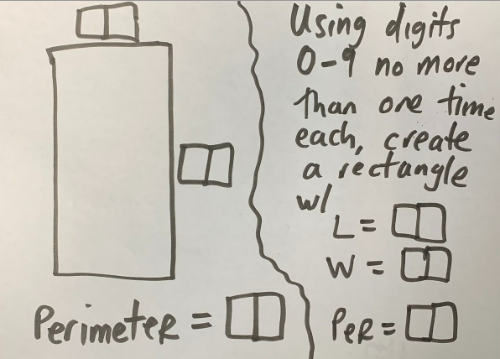 Using digits
0-9 no more
than one time
each, create
a rectangle
w/
L =
W =
Perimeter =
Per =